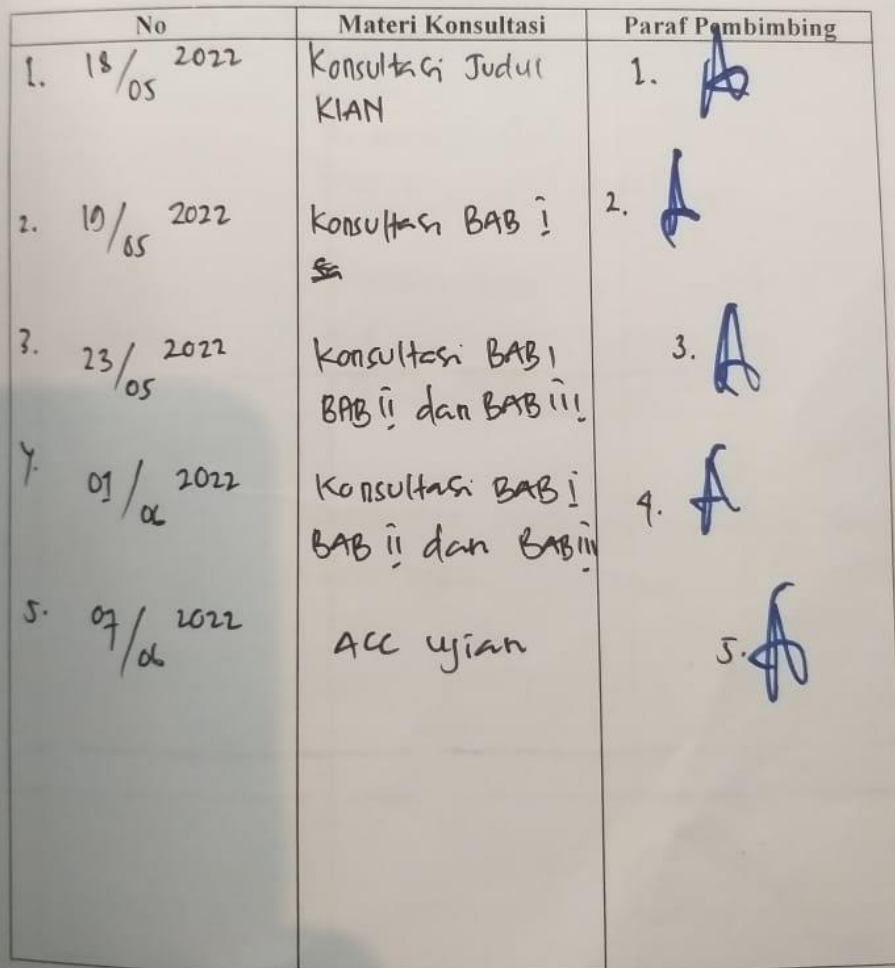 No Materi Konsultasi Paraf Pembimbing
1. 18/05 2022 Konsultasi Judul 1.
KIAN
2. 19/05 2022 Konsultasi BAB I 2.
3. 23/05 2022 Konsultasi BAB I 3.
BAB II dan BAB III
4. 01/06 2022 Konsultasi BAB I 4.
BAB II dan BAB III
5. 07/06 2022 ACC ujian 5.